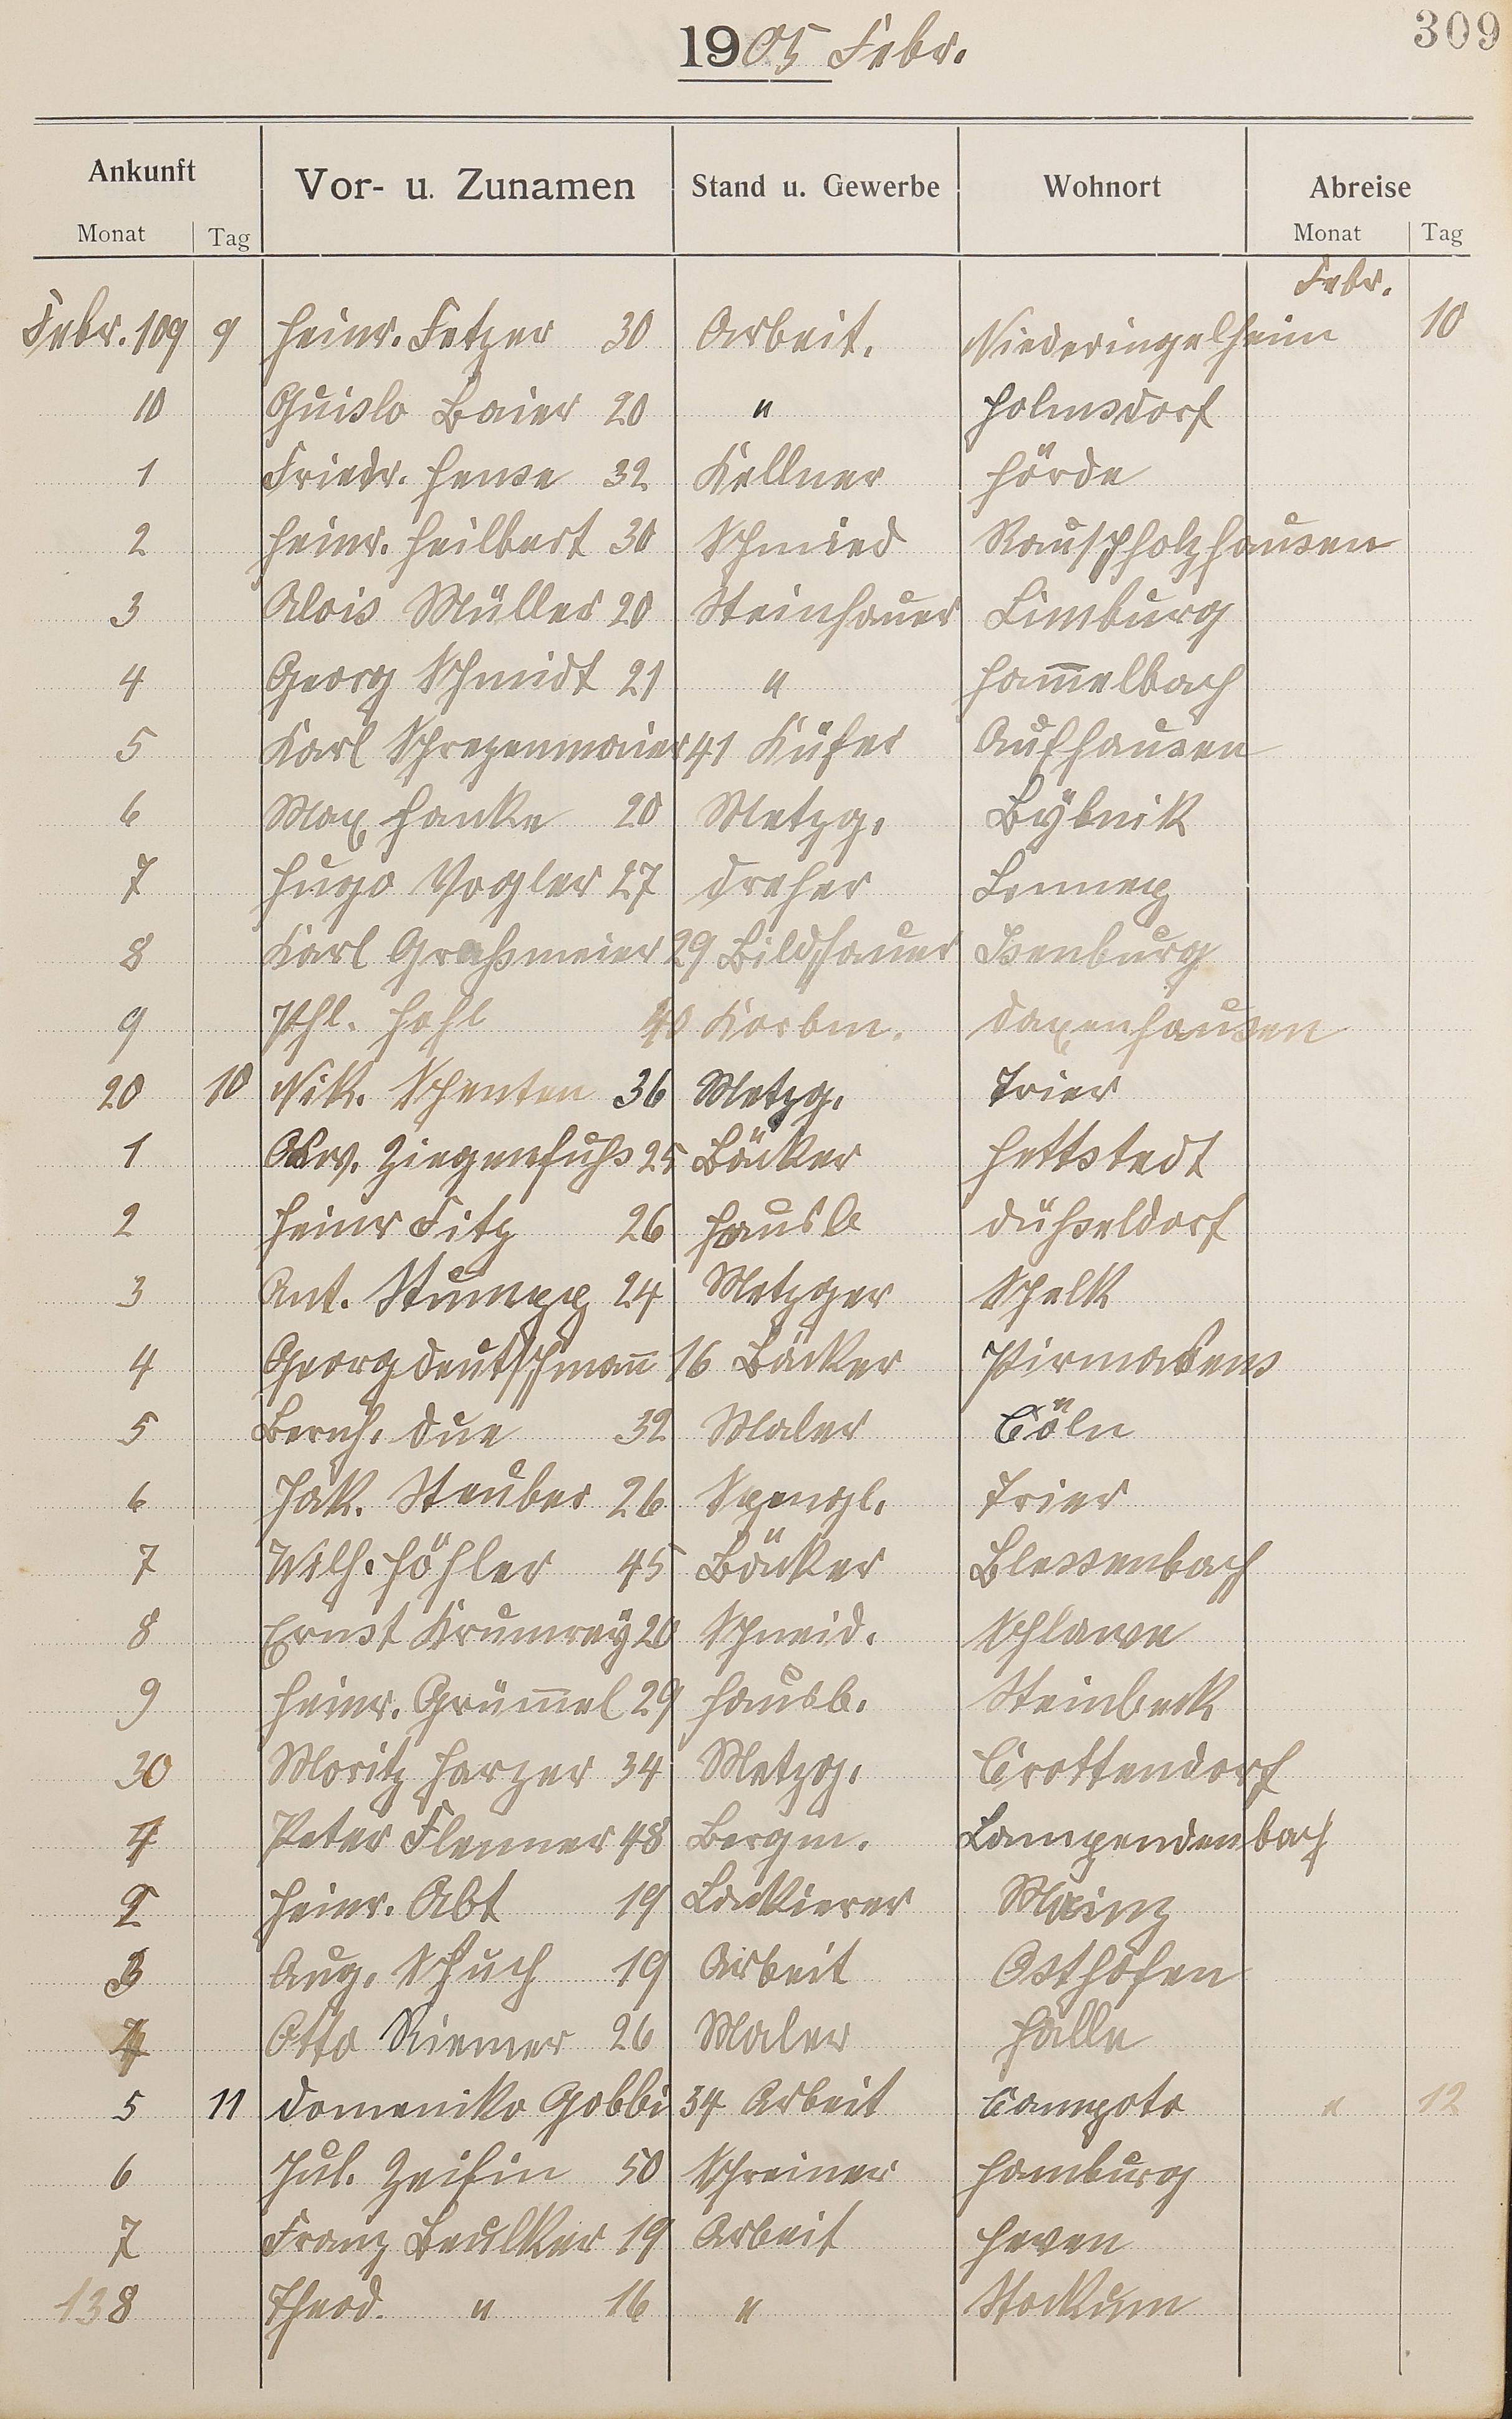 309
1905 Febr.
Ankunft Vor- u. Zunamen Stand u. Gewerbe Wohnort Abreise
Monat Tag Monat Tag
Febr.
Febr. 109 9 Heinr. Fetzer 30 Arbeit. Niederingelheim 10
10 Guislo Baier 20 " Holmsdorf
1 Friedr. Hense 32 Kellner Hörde
2 Heinr. Heilbert 30 Schmied Rauschholzhausen
3 Alois Müller 20 Steinhauer Limburg
4 Georg Schmidt 21 " Ham̅elbach
5 Karl Schrezenmaier 41 Küfer Aufhausen
6 Max Hanke 20 Metzg. Bybnik
7 Hugo Vogler 27 Dreher Lennep
8 Karl Graßmeier 29 Bildhauer Isenburg
9 Phl. Hohl 40 Korbm. Daxenhausen
20 10 Nik. Schenten 36 Metzg. Trier
1 Osw. Ziegenfuhs 25 Bäcker Hettstedt
2 Heinr Fitz 26 Hausb Düßeldorf
3 Ant. Stumpp 24 Metzger Schelk
4 Georg Deutschman̅ 16 Bäcker Pirmasens
5 Bernh. Due 32 Maler Cöln
6 Jak. Steuber 26 Spengl. Trier
7 Wilh. Höhler 45 Bäcker Blessenbach
8 Ernst Krumrey 20 Schneid. Schlawe
9 Heinr. Grüm̅el 29 Hausb. Steinbeck
30 Moritz Harzer 34 Metzg. Crottendorf
1 Peter Flenner 48 Bergm. Lampendenbach
2 Heinr. Abt 19 Lackierer Mainz
3 Aug. Schuch 19 Arbeit Osthofen
4 Otto Riemer 26 Maler Halle
5 11 Domeniko Gobbi 34 Arbeit Campoto " 12
6 Jul. Zeisin 50 Schreiner Hamburg
7 Franz Beulker 19 Arbeit Heven
138 Theod. " 16 " Stockum